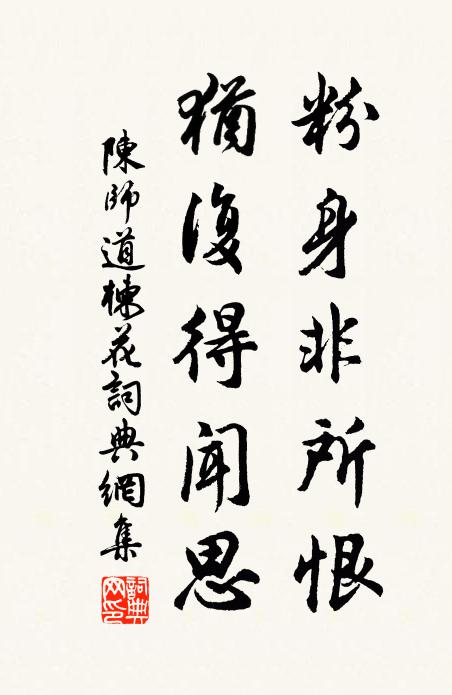 粉身非所恨
猶復得聞思
陳師道楝花詞典網集
詞典網印